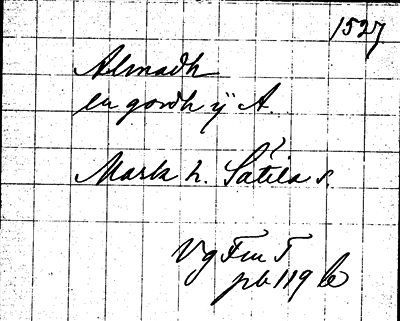 1527
Almadh
en gordh ÿ A.
Mark h. Sätila s.
Vg Fm T
pb 119 b